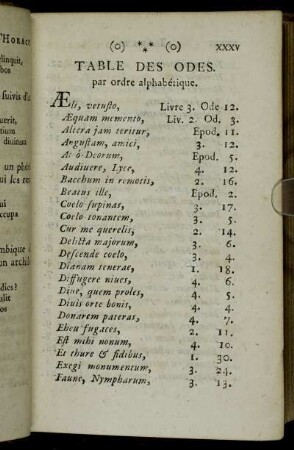 (o) *** (o) XXXV
TABLE DES ODES.
par ordre alphabétique.
Æli, vetusto, Livre 3. Ode 12.
Æquam memento, Liv. 2. Od. 3.
Altera jam teritur, Epod. 11.
Angustam, amici, 3. 12.
At ô Deorum, Epod. 5.
Audivere, Lyce, 4. 12.
Bacchum in remotis, 2. 16.
Beatus ille, Epod. 2.
Coelo supinas, 3. 17.
Coelo tonantem, 3. 5.
Cur me querelis, 2. 14.
Delicta majorum, 3. 6.
Descende coelo, 3. 4.
Dianam tenerae, 1. 18.
Diffugere nives, 4. 6.
Dive, quem proles, 4. 5.
Divis orte bonis, 4. 4.
Donarem pateras, 4. 7.
Eheu fugaces, 2. 11.
Est mihi nonum, 4. 10.
Et thure & fidibus, 1. 30.
Exegi monumentum, 3. 24.
Faune, Nympharum, 3. 13.